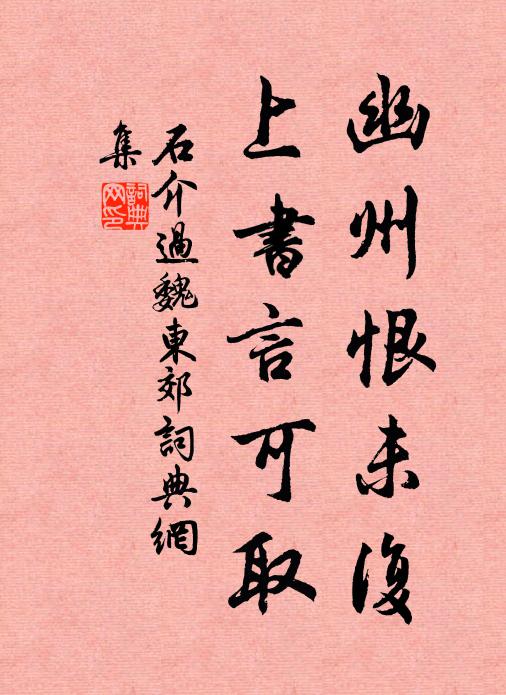 幽州恨未復
上書言可取
石介過魏東郊詞典網
集
詞典网印